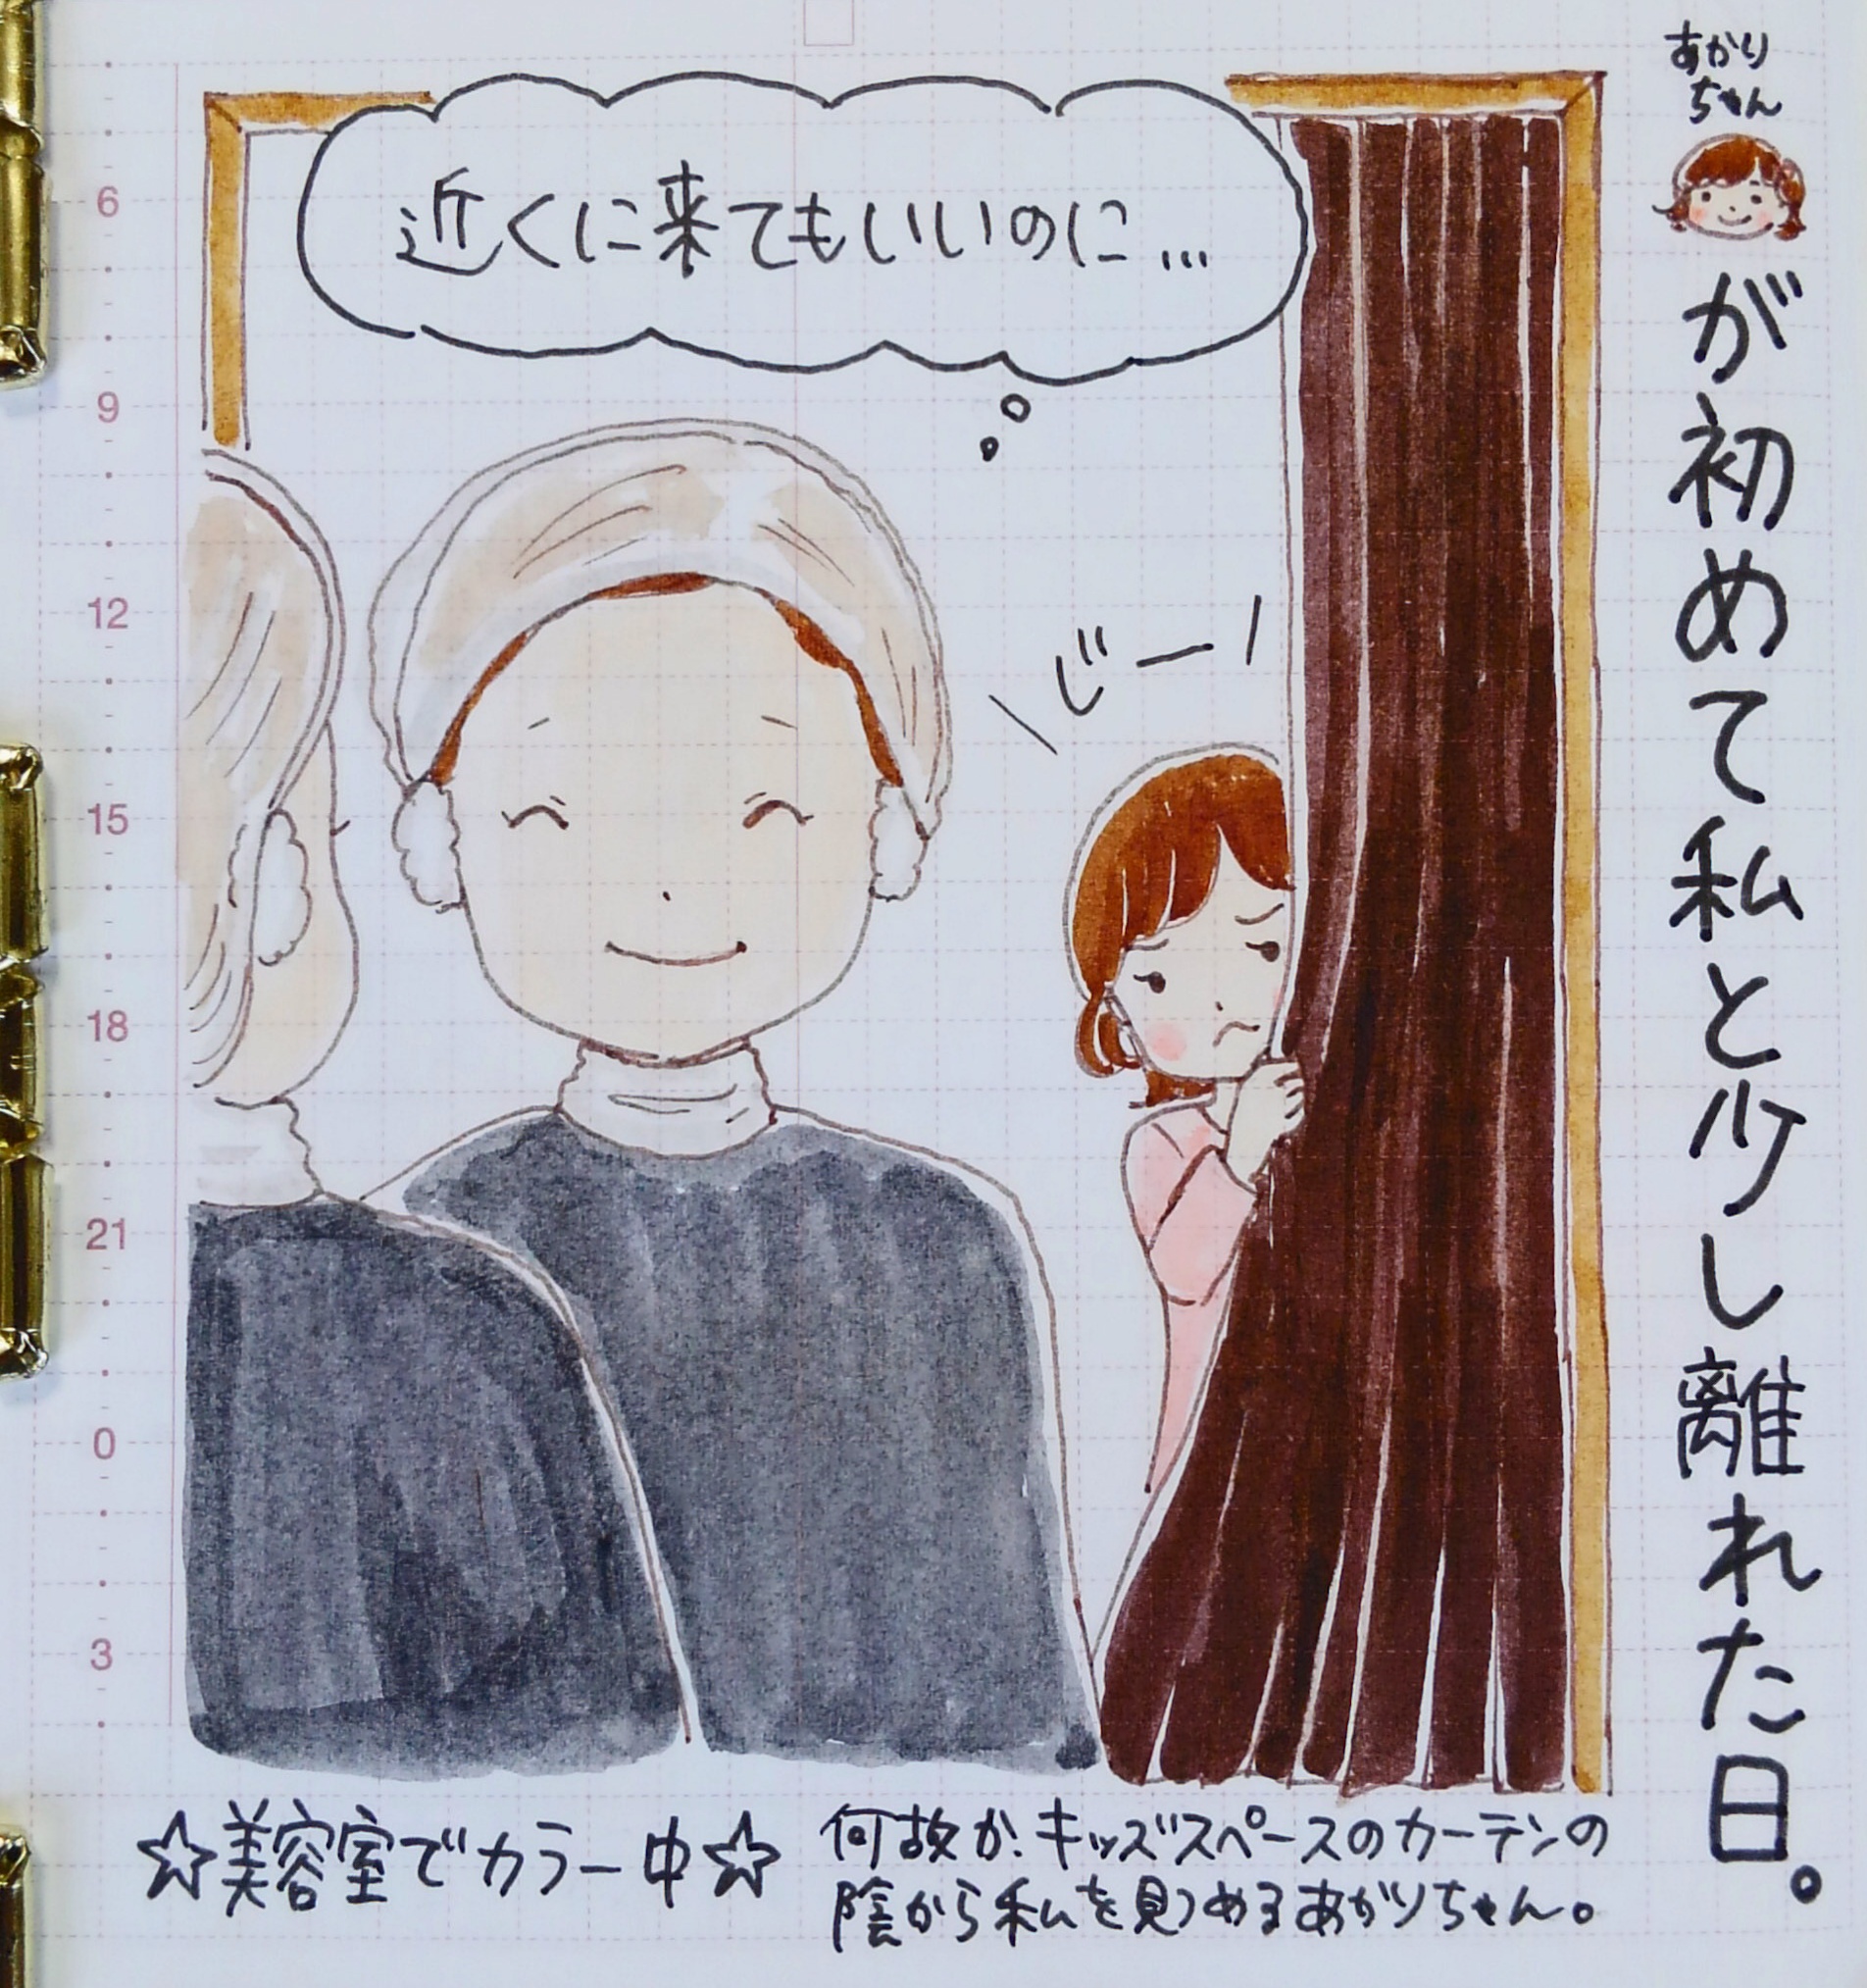 あかり
ちゃん
が初めて私と少し離れた日。
近くに来てもいいのに…
じーー
6
9
12
15
18
21
0
3
☆美容室でカラー中☆
何故か、キッズスペースのカーテンの
陰から私を見つめるあかりちゃん。